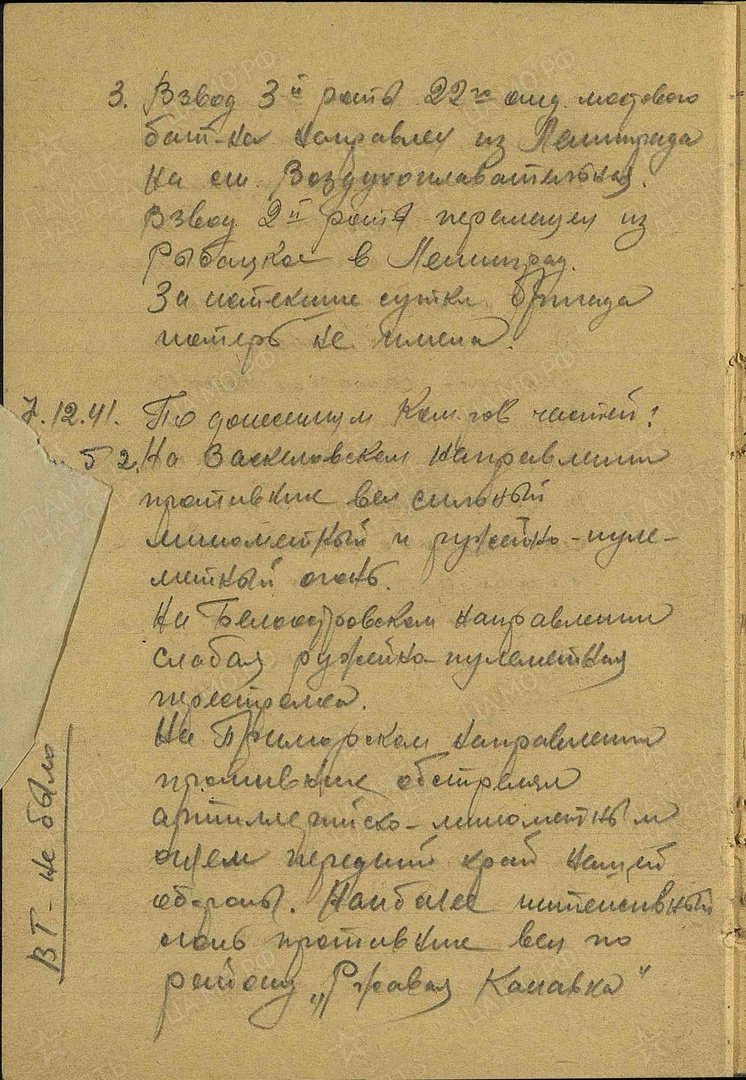 3. Взвод 3й роты 22го отд. мостового
бат-на направлен из Ленинграда
на ст. Воздухоплавательная.
Взвод 2й роты перемещен из
Рыбацкое в Ленинград.
За истекшие сутки бригада
потерь не имела.
7.12.41. По донесениям Ком-ров частей:
На Васкеловском направлении
противник вел сильный
минометный и ружейно-пуле-
метный огонь.
На Белоостровском направлении
слабая ружейно-пулеметная
перестрелка.
На Приморском направлении
противник обстрелял
артиллерийско-минометным
огнем передний край нашей
обороны. Наиболее интенсивный
огонь противник вел по
району „Ржавая Канавка"
ВТ - не было